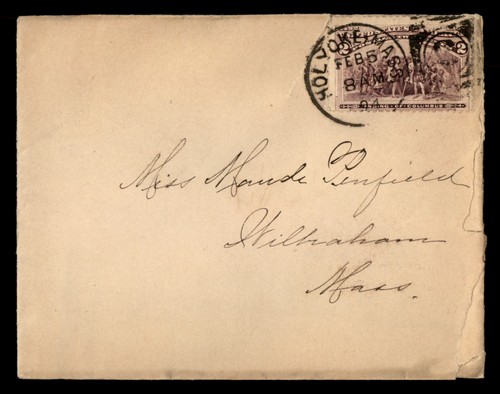 HOLYOKE MASS
FEB 5
8 AM
94
LANDING OF COLUMBUS
Miss Maude Penfield
Wilbraham
Mass.